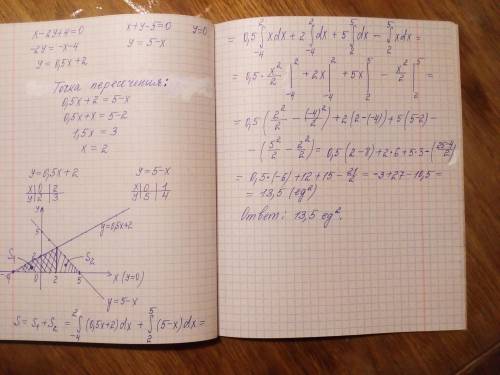 x-2y+4=0   x+y-5=0   y=0
-2y=-x-4   y=5-x
y=0,5x+2
Точка пересечения:
0,5x+2=5-x
0,5x+x=5-2
1,5x=3
x=2
y=0,5x+2   y=5-x
x|0|2   x|0|1
y|2|3   y|5|4
y
5
y=0,5x+2
S₁   S₂
-4   0   2   5   x (y=0)
y=5-x
S=S₁+S₂=∫₋₄²(0,5x+2)dx+∫₂⁵(5-x)dx=
=0,5∫₋₄²xdx+2∫₋₄²dx+5∫₂⁵dx-∫₂⁵xdx=
=0,5·x²/2|₋₄²+2x|₋₄²+5x|₂⁵-x²/2|₂⁵=
=0,5(2²/2-(-4)²/2)+2(2-(-4))+5(5-2)-
-(5²/2-2²/2)=0,5(2-8)+2·6+5·3-(25-4/2)
=0,5·(-6)+12+15-21/2=-3+27-10,5=
=13,5 (ед²)
Ответ: 13,5 ед².